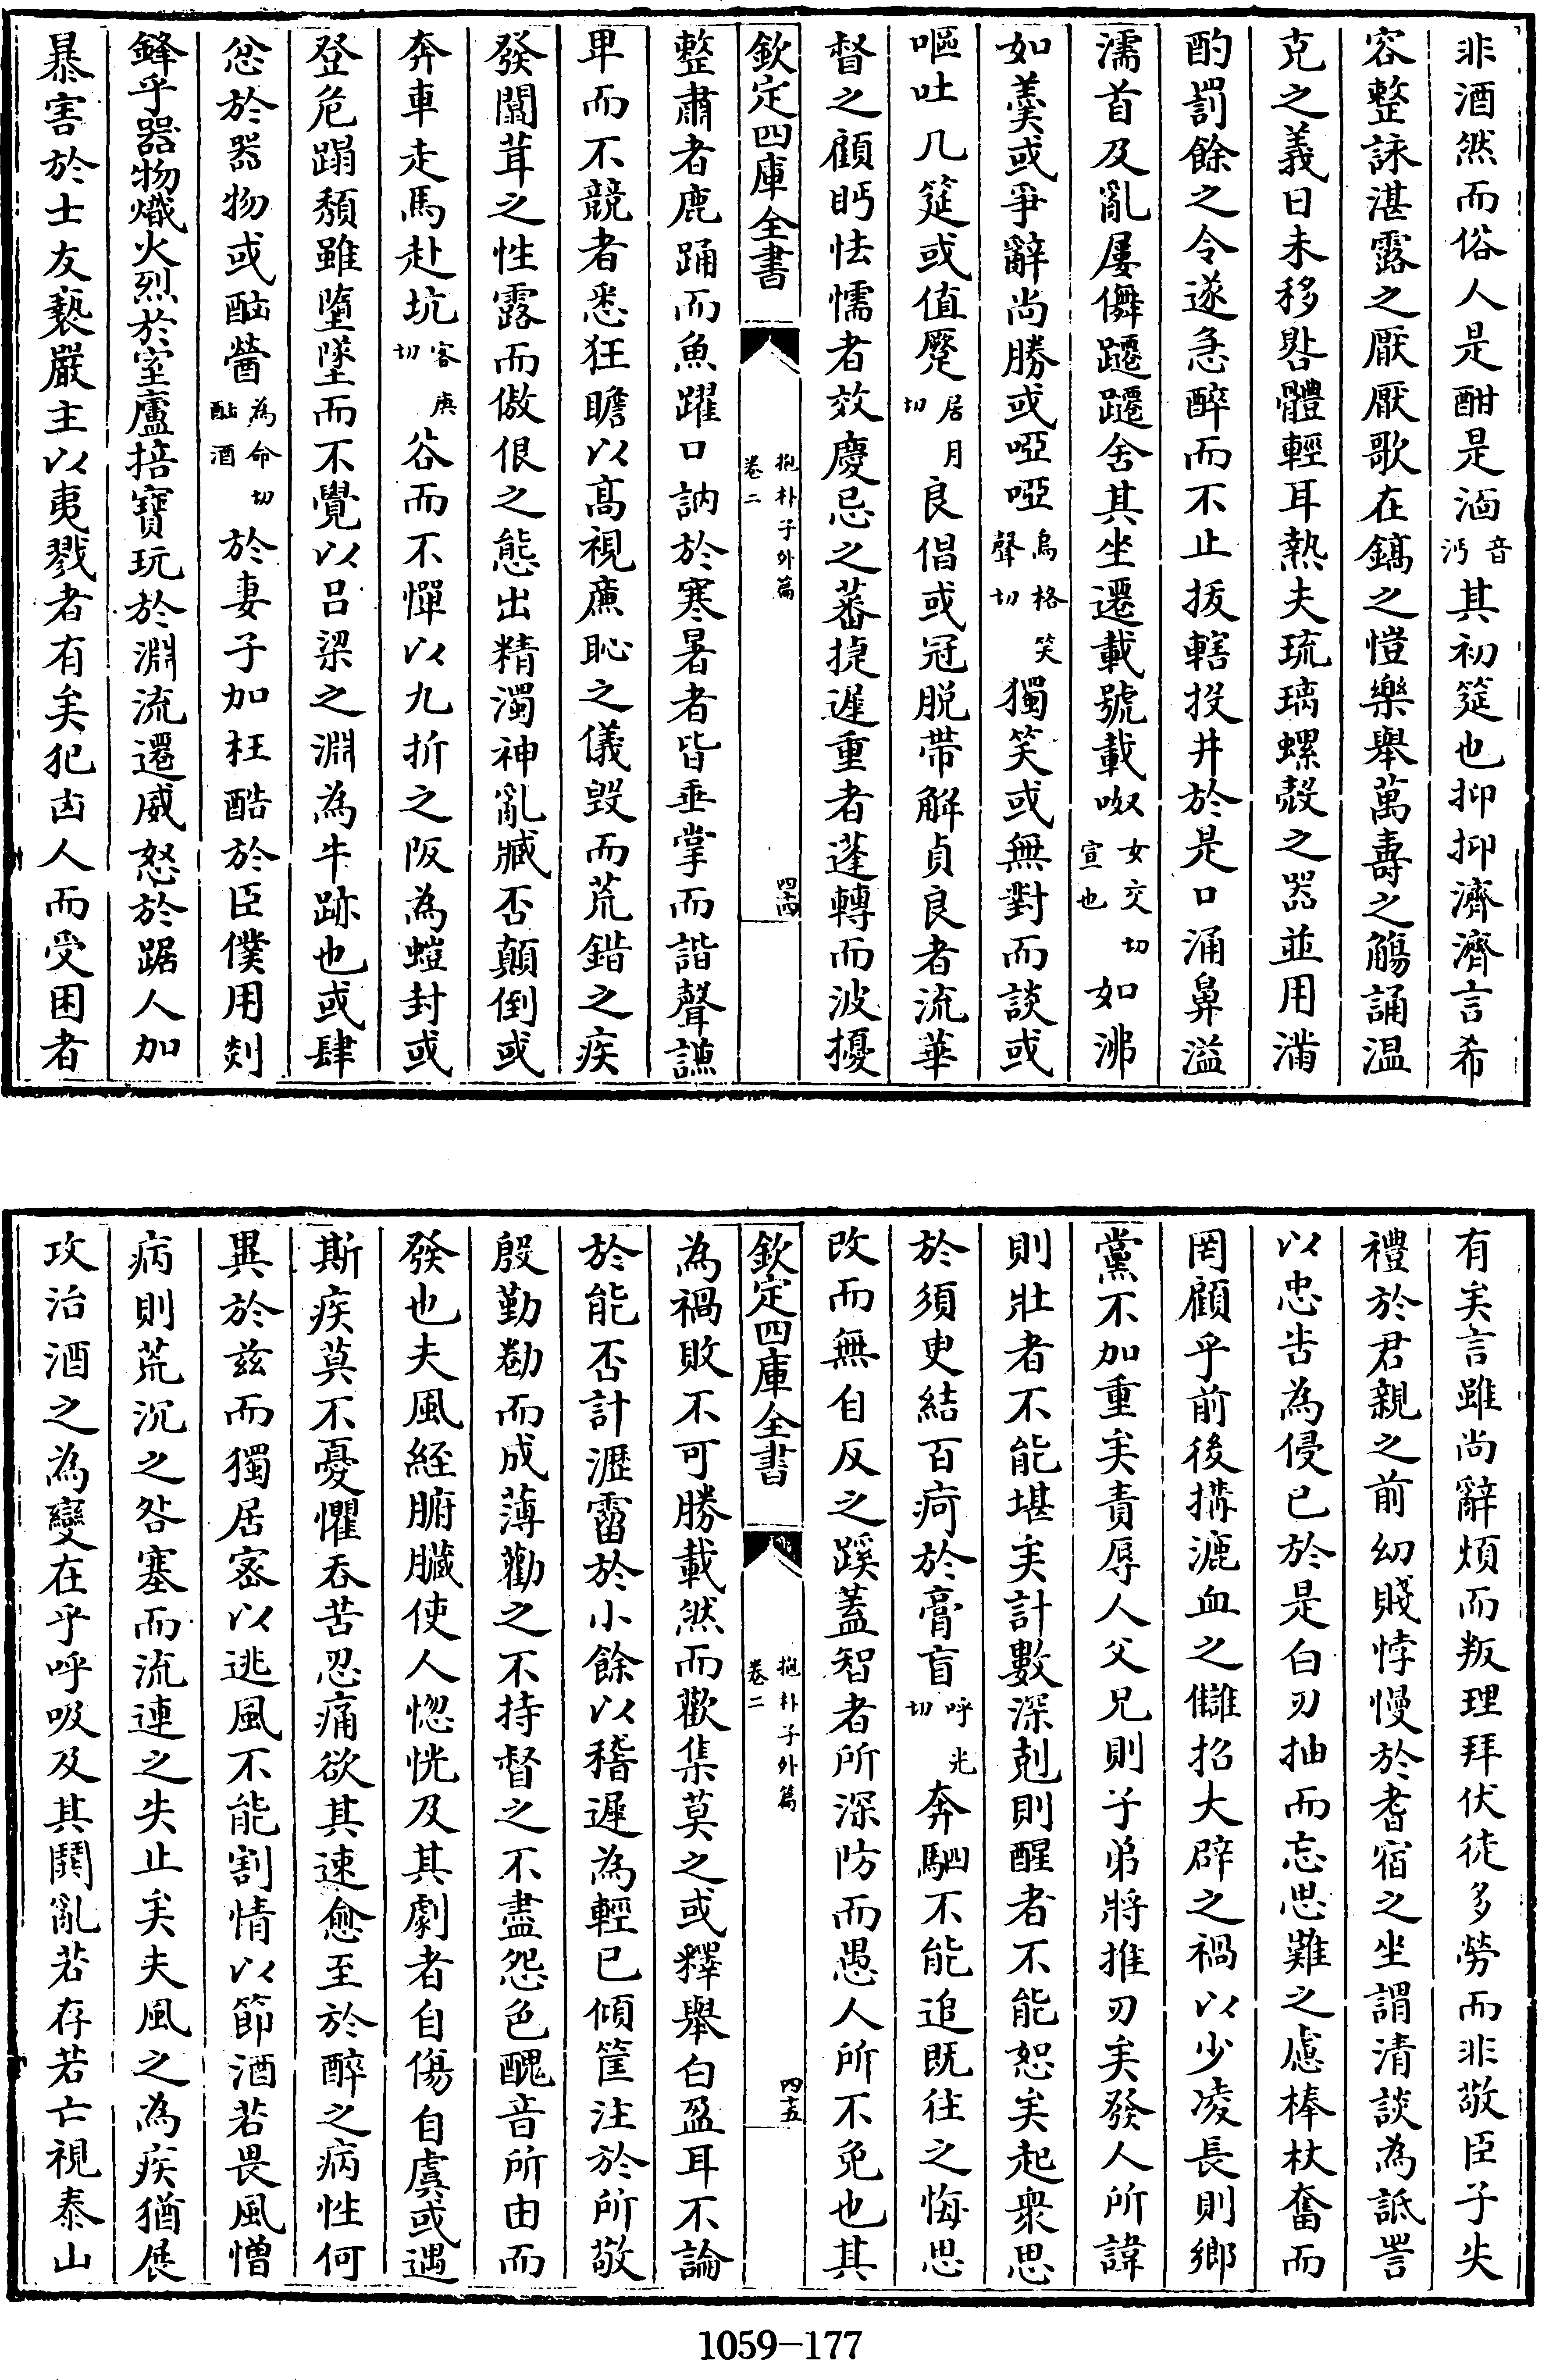 非酒然而俗人是酣是湎音沔其初筵也抑抑濟濟言希
容整詠湛露之厭厭歌在鎬之愷樂舉萬壽之觴誦温
克之義日未移晷體輕耳熱夫琉璃螺殼之器並用滿
酌罰餘之令遂急醉而不止拔轄投井於是口涌鼻溢
濡首及亂屢儛躚躚舍其坐遷載號載呶女交切宣也如沸
如羹或爭辭尚勝或啞啞烏格切笑聲獨笑或無對而談或
嘔吐几筵或值蹷居月切良倡或冠脱帶解貞良者流華
督之顧眄怯懦者效慶忌之蕃捷遲重者蓬轉而波擾
欽定四庫全書
抱朴子外篇
卷二
四十四
整肅者鹿踊而魚躍口訥於寒暑者皆垂掌而諧聲謙
卑而不競者悉狂瞻以高視㢘恥之儀毁而荒錯之疾
發闒茸之性露而傲佷之態出精濁神亂臧否顛倒或
奔車走馬赴坑客庚切谷而不憚以九折之阪為螘封或
登危蹋頽雖墮墜而不覺以吕梁之淵為牛跡也或肆
忿於器物或酗䤕為命切酗酒於妻子加枉酷於臣僕用剡
鋒乎器物熾火烈於室廬掊寶玩於淵流遷威怒於踞人加
暴害於士友褻嚴主以夷戮者有矣犯凶人而受困者
有矣言雖尚辭煩而叛理拜伏徒多勞而非敬臣子失
禮於君親之前幼賤悖慢於耆宿之坐謂清談為詆詈
以忠告為侵已於是白刃抽而忘思難之慮棒杖奮而
罔顧乎前後搆漉血之讎招大辟之禍以少凌長則鄉
黨不加重矣責辱人父兄則子弟將推刃矣發人所諱
則壯者不能堪矣計數深剋則醒者不能恕矣起衆思
於須臾結百痾於膏肓呼光切奔駟不能追既往之悔思
改而無自反之蹊蓋智者所深防而愚人所不免也其
欽定四庫全書
抱朴子外篇
卷二
四十五
為禍敗不可勝載然而歡集莫之或釋舉白盈耳不論
於能否計瀝霤於小餘以稽遲為輕已傾筐注於所敬
殷勤勌而成薄勸之不持督之不盡怨色醜音所由而
發也夫風經腑臟使人惚恍及其劇者自傷自虞或遇
斯疾莫不憂懼吞苦忍痛欲其速愈至於醉之病性何
異於兹而獨居密以逃風不能割情以節酒若畏風憎
病則荒沉之咎塞而流連之失止矣夫風之為疾猶展
攻治酒之為變在乎呼吸及其鬭亂若存若亡視泰山
1059-177